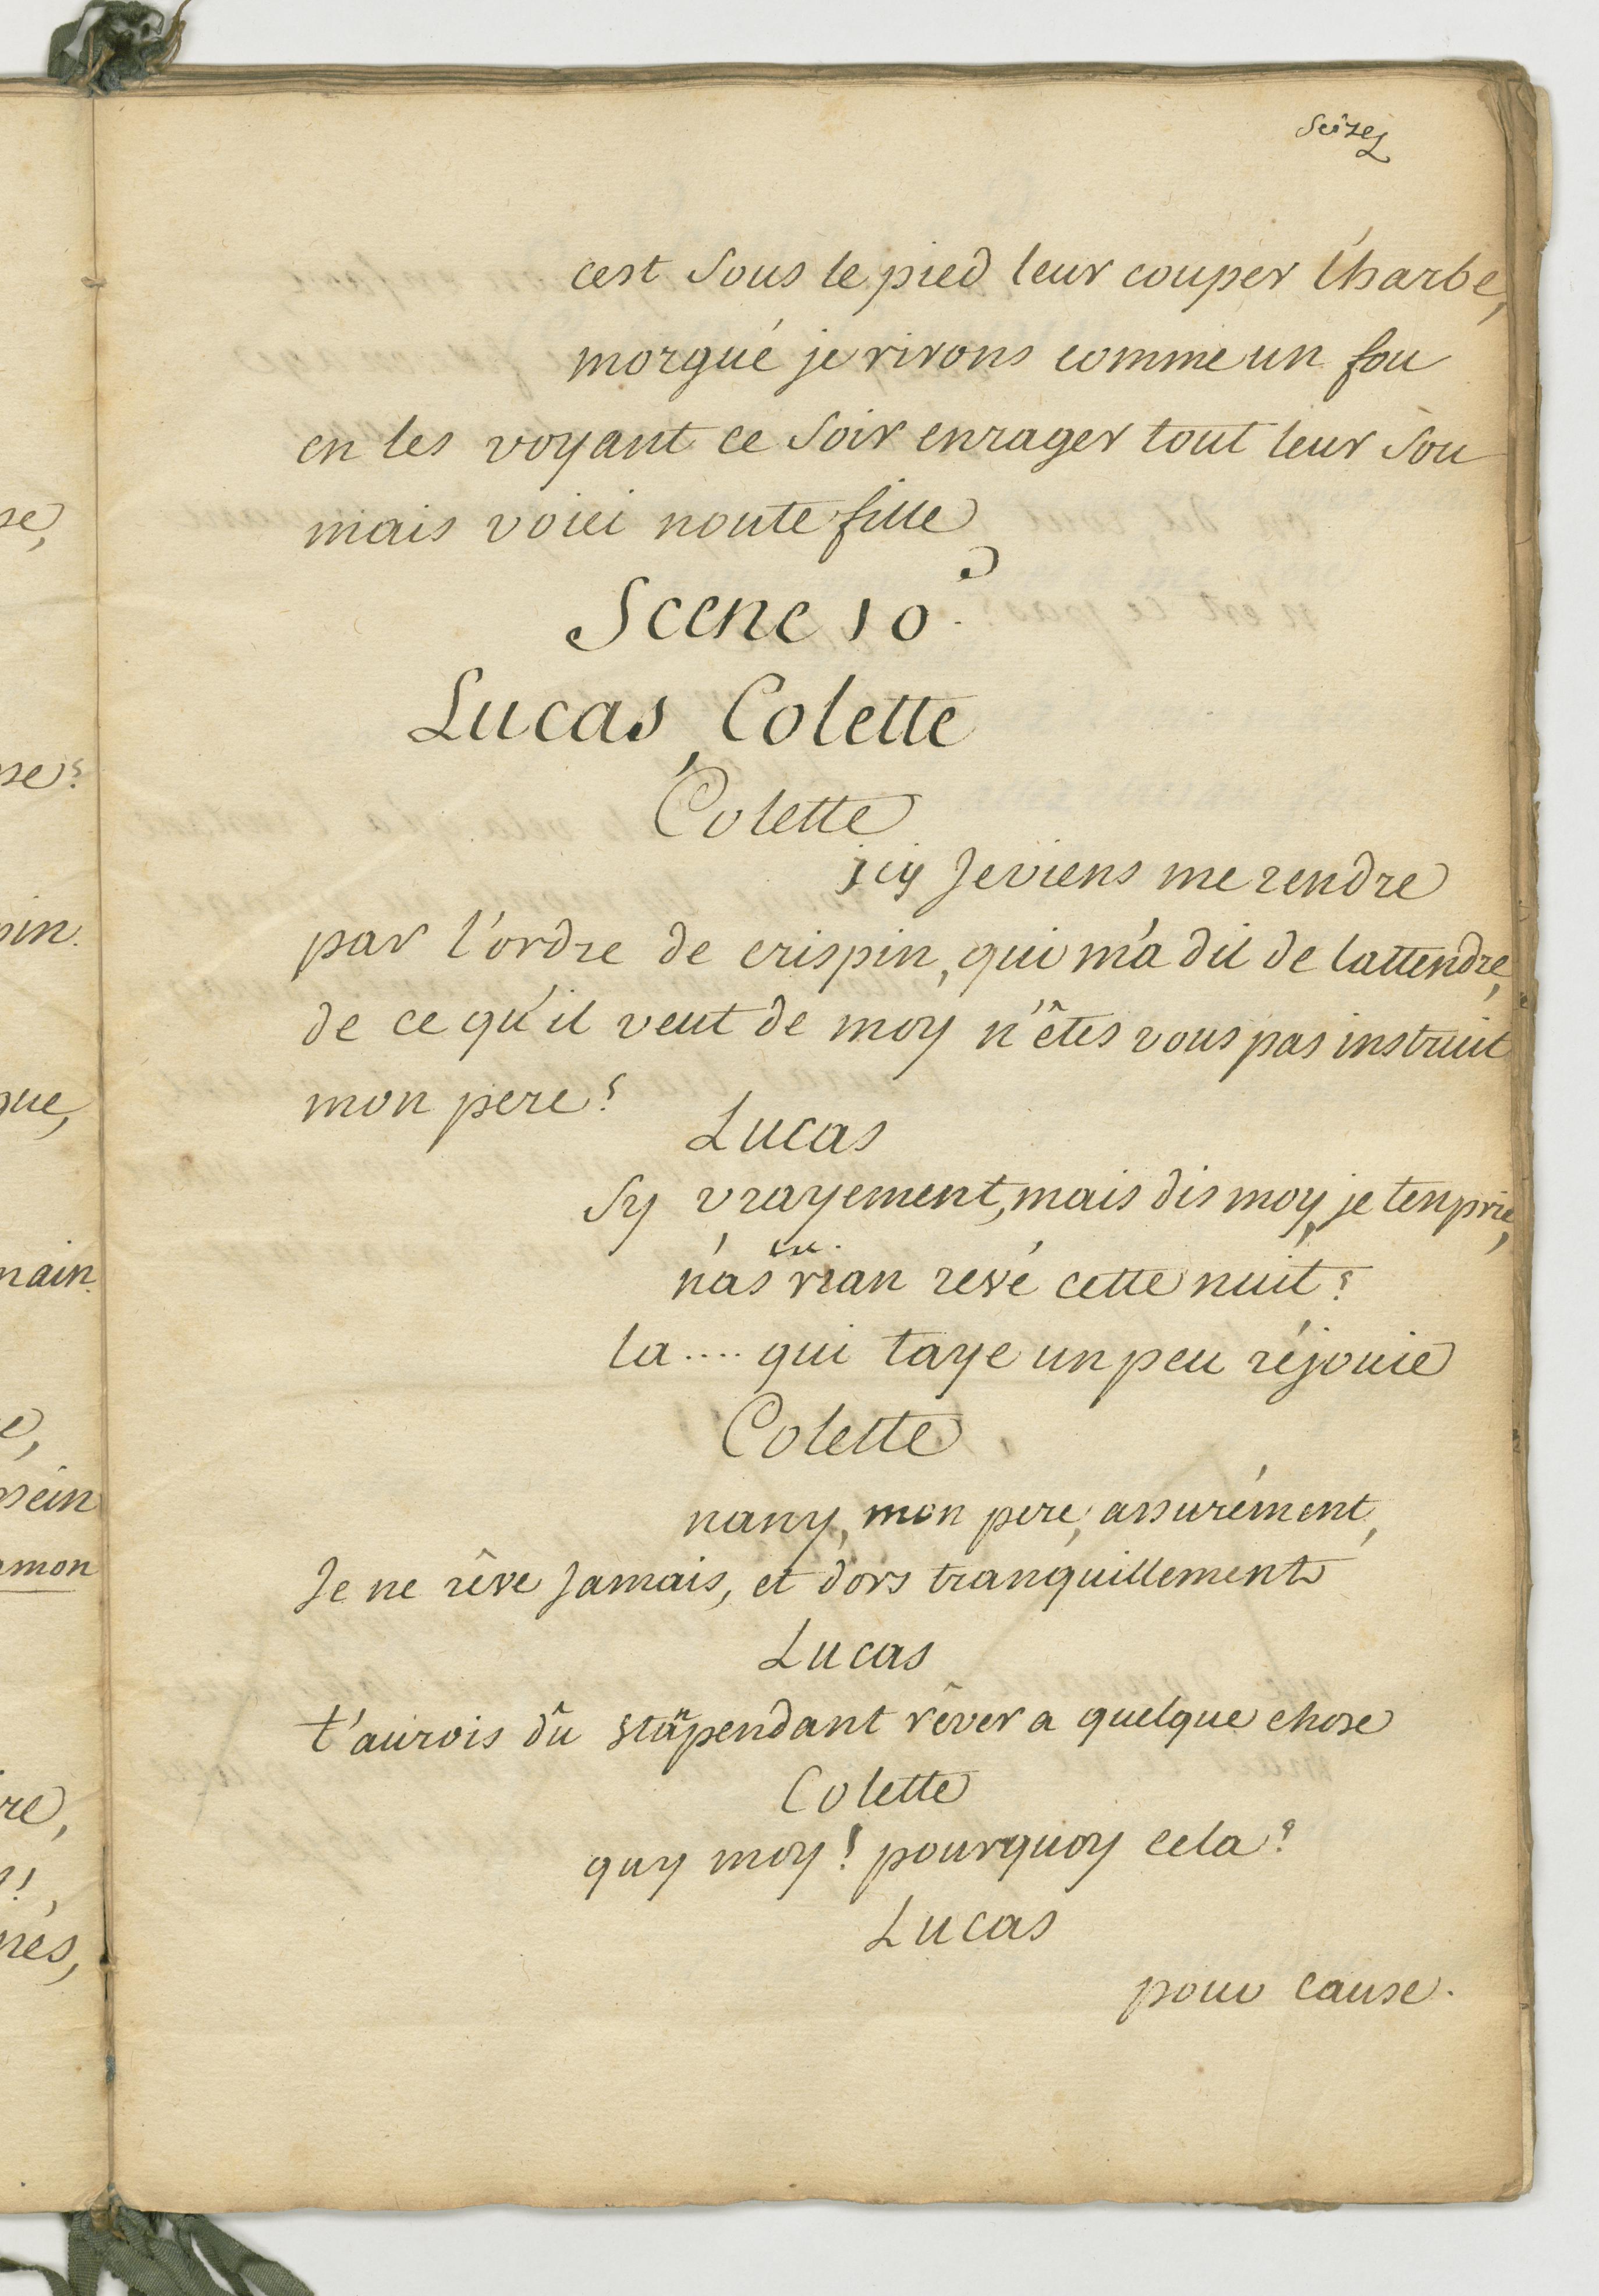 seize
cest sous le pied leur couper l'harbe,
morgué je rirons comme un fou
en les voyant ce soir enrager tout leur sou
mais voici noute fille
Scene 10e.
Lucas, Colette
Colette
icy Je viens me rendre
par l'ordre de crispin, qui m'a dit de lattendre,
de ce qu'il veut de moy n'êtes vous pas instruit
mon pere?
Lucas
sy vrayement, mais dis moy, je tenprie,
n'as tu rian revé cette nuit?
la .... qui taye un peu réjouie
Colette
nany, mon pere, assurément,
Je ne rêve Jamais, et dors tranquillement
Lucas
t'aurois dû stapendant rêver a quelque chose
Colette
quy moy! pourquoy cela?
Lucas
pour cause.